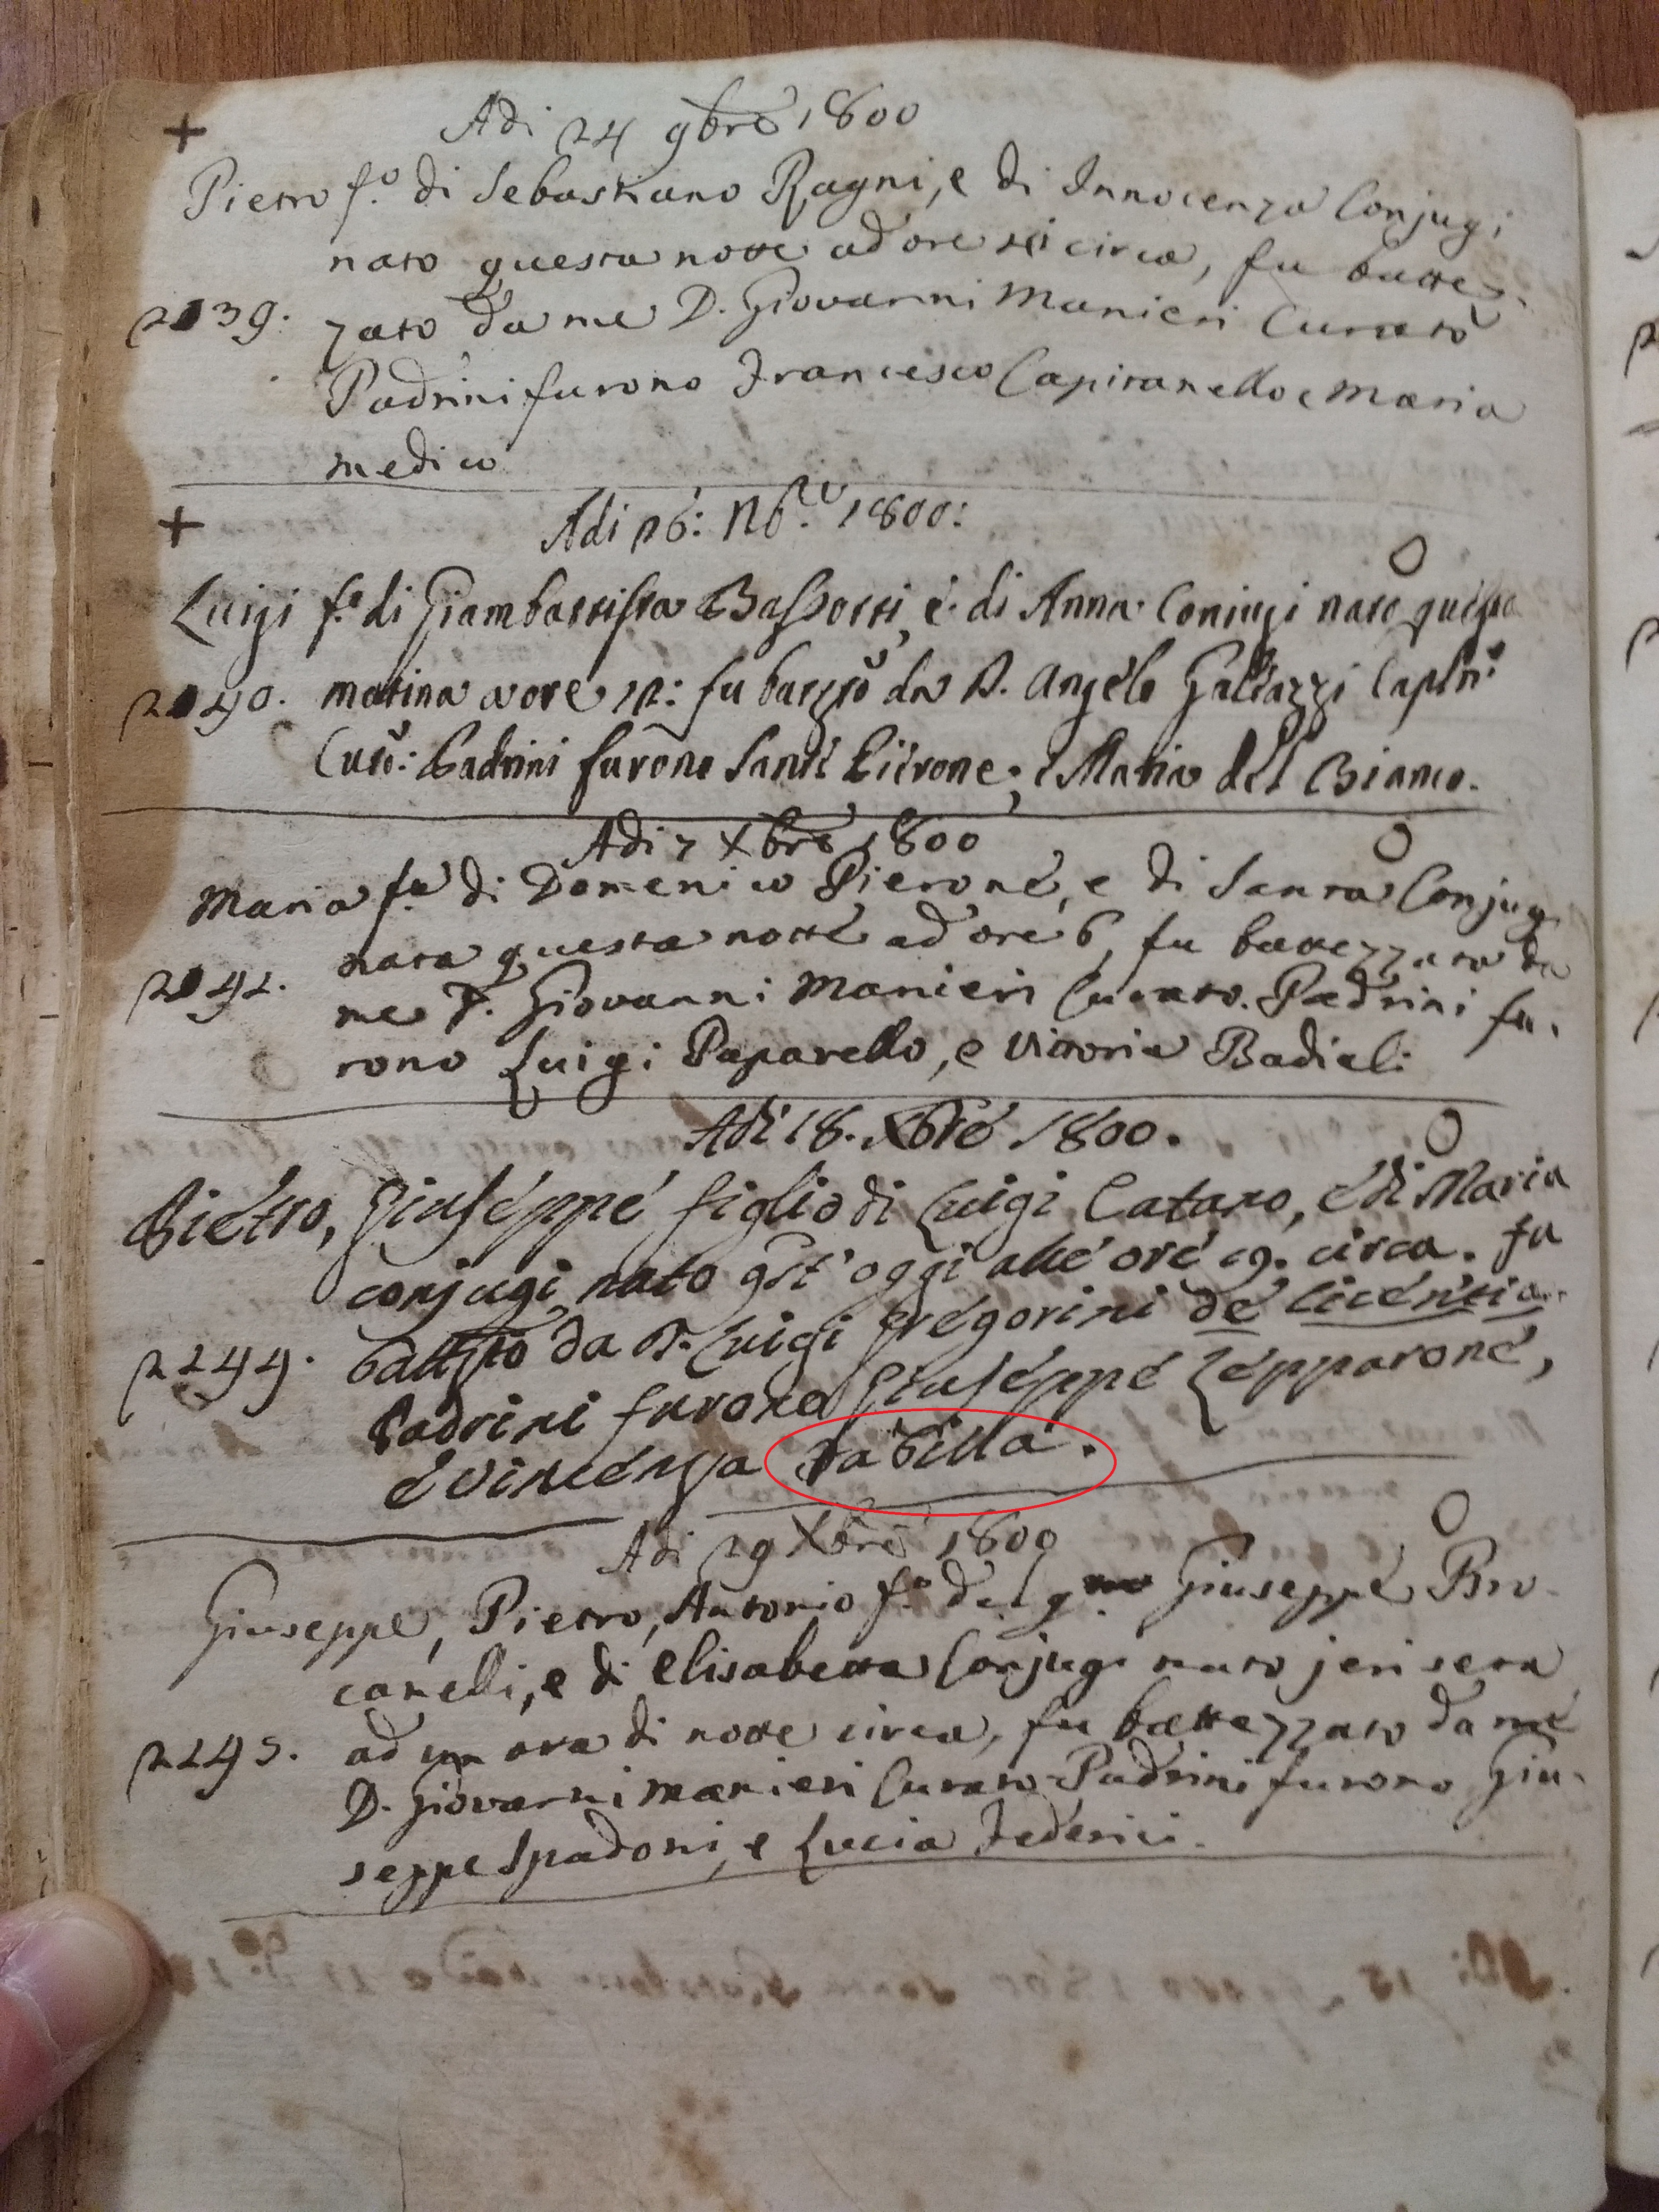 + Adi 24 9bre 1800
Pietro f.o di Sebastiano Ragni, e di Innocenza Conjugi
nato questa notte ad ore sei circa, fu battez-
2139. zato da me D. Giovanni Manieri Curato
Padrini furono Francesco Capitanello e Maria
Medico
+ Adi 26: Nb.re 1800:
Luigi f.o di Giambattista Bassotti, e di Anna Coniugi nato questa
2140. matina a ore 12: fu battzto da D. Angelo Galeazzi Capln.o
Curo: Padrini furono Sante Pierone, e Maria del Bianco.
Adi 7 Xbre 1800
Maria f.a di Domenico Pierone, e di Santa Conjug
nata questa notte ad ore 6, fu battezzata da
2141. me D. Giovanni Manieri Curato. Padrini fu-
rono Luigi Paparello, e Vittoria Badiali
Adi 18. Xbre 1800.
Pietro, Giuseppe figlio di Luigi Cataro, e di Maria
conjugi nato gst' oggi alle ore 19. circa. fu
2144. battzto da D. Luigi Gregorini de licentia
Padrini furono Giuseppe Zepparone,
e Vincenza
Adi 29 Xbre 1800
Giuseppe, Pietro, Antonio f.o del q.m Giuseppe Bro-
canelli, e di Elisabetta Conjugi nato jeri sera
2145. ad un ora di notte circa, fu battezzato da me
D. Giovanni Manieri Curato Padrini furono Giu-
seppe Spadoni, e Lucia Federici.